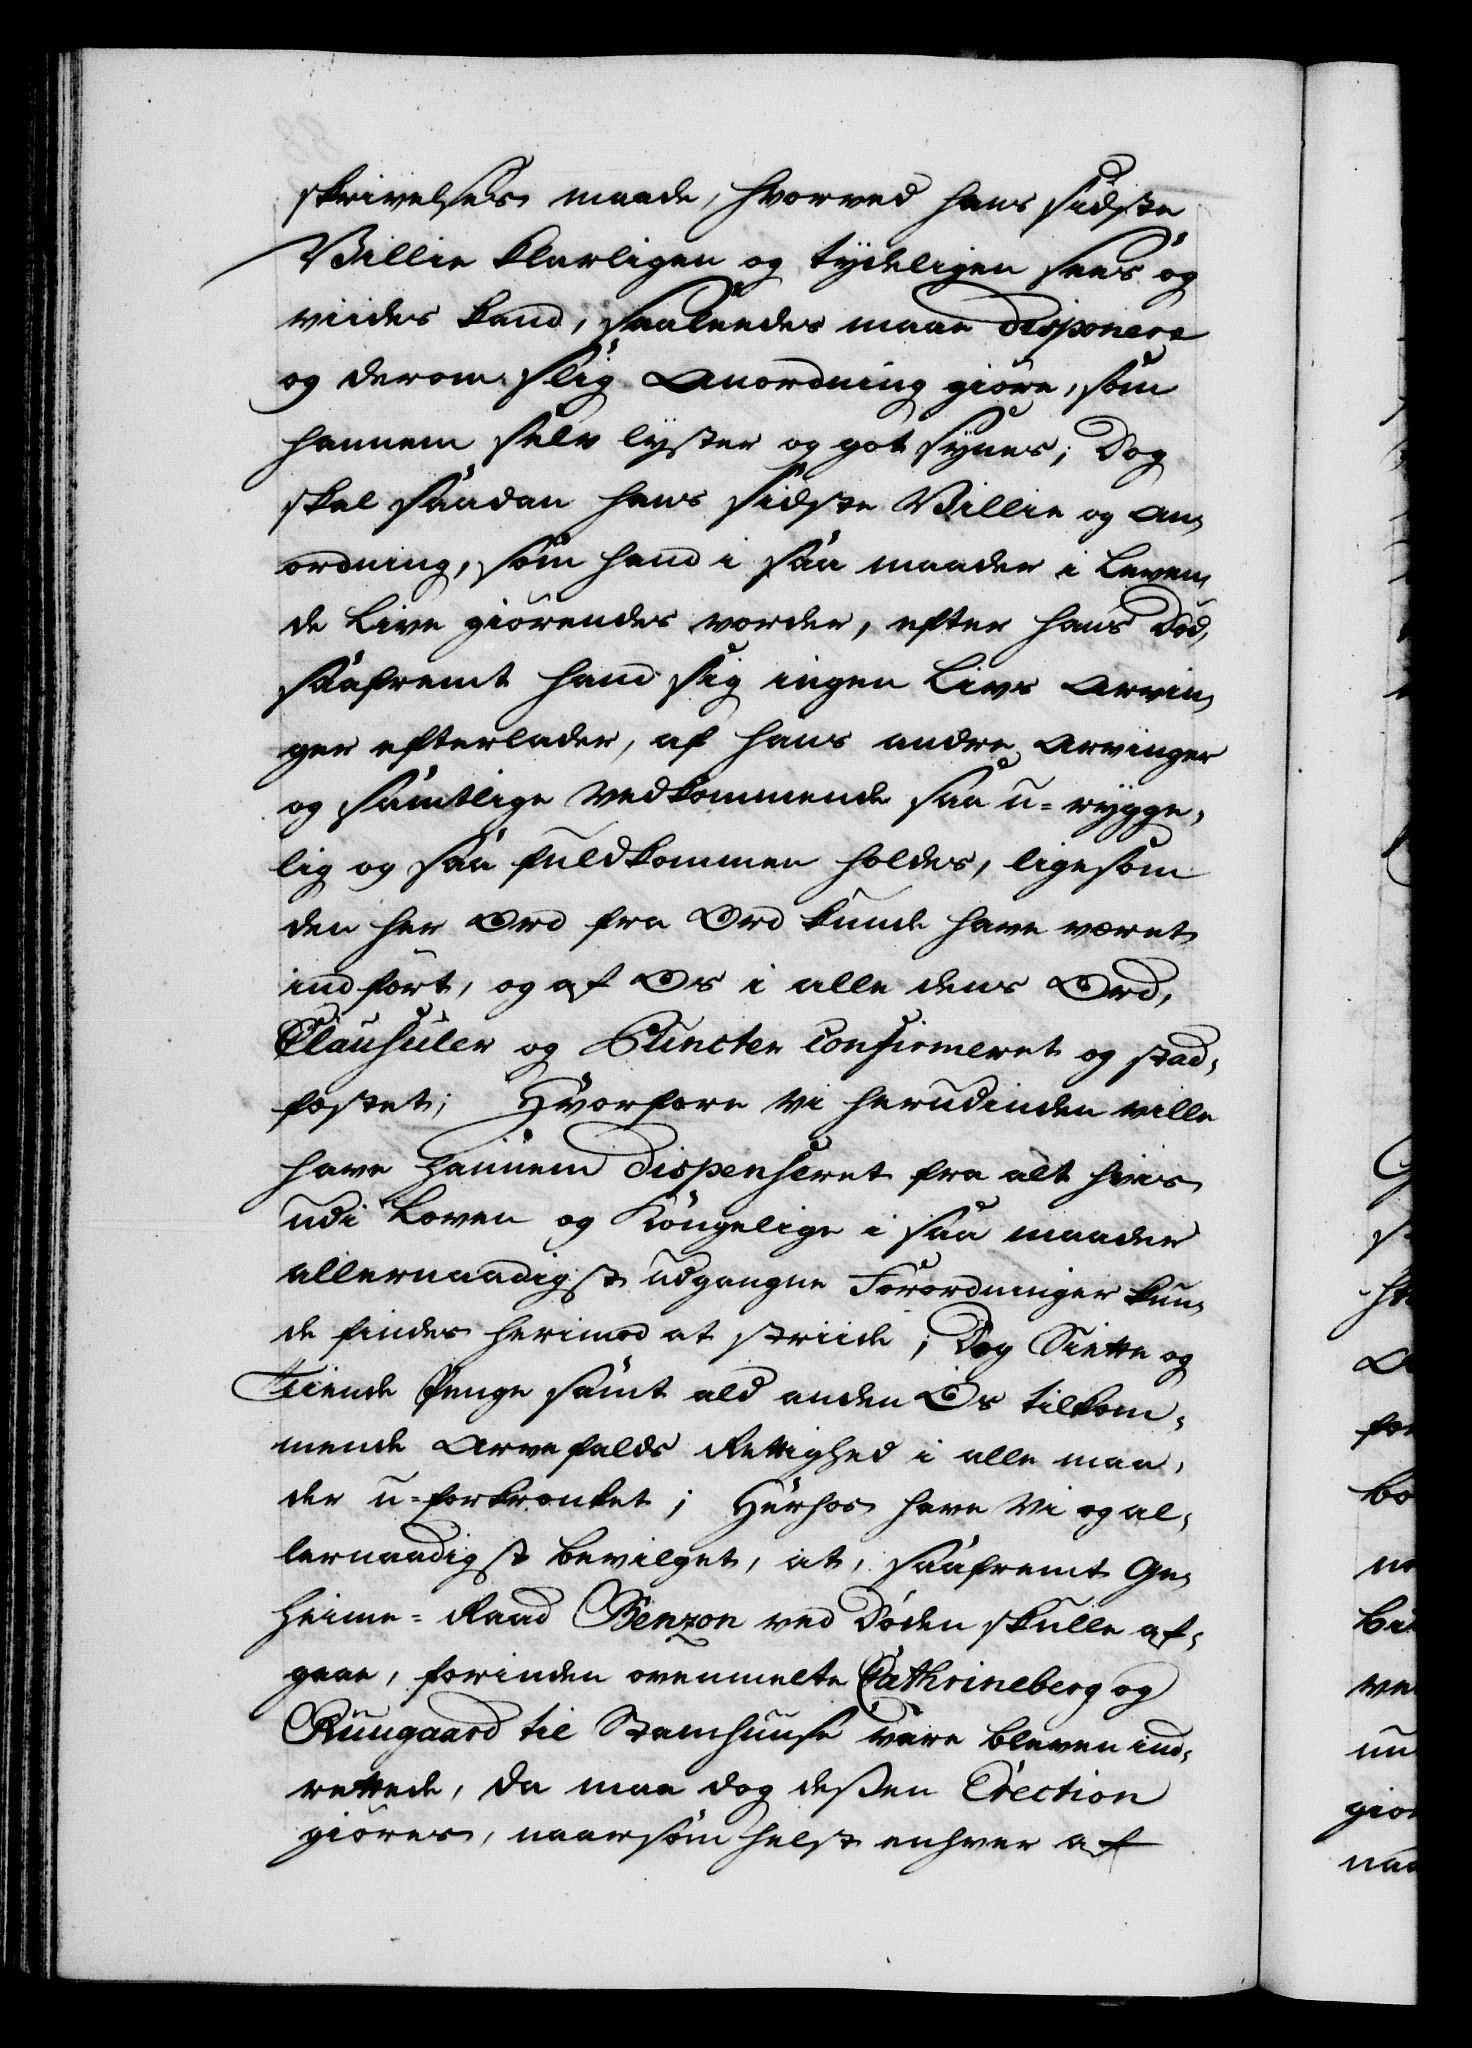 skrivelses maade, hvorved hans sidste
Villie klarligen og tydeligen sees og
viides kand, saaleedes maae disponere
og derom slig Anordning giøre, som
hannem selv lyster og got synes; Dog
skal saadan hans sidste Villie og An,
ordning, som hand i saa maader i Leven,
de Live giørendes vorder, efter hans Død,
saafremt hand sig ingen Livs Arvin,
ger efterlader, af hans andre Arvinger
og samtlige Vedkommende saa u-rygge,
lig og saa fuldkommen holdes, ligesom
den her Ord fra Ord kunde have været
indført, og af Os i alle dens Ord,
Clausuler og Puncter confirmeret og stad,
fæstet; Hvorfore Vi herudinden ville
have hannem dispenseret fra alt hvis
udi Loven og Kongelige i saa maader
allernaadigst udgangne Forordninger kun,
de findes herimod at striide; Dog Siette og
Tiende Penge samt ald anden Os tilkom,
mende Arvefalds Rettighed i alle maa,
der u-forkrænket; Herhos have Vi og al,
lernaadigst bevilget, at, saafremt Ge,
heime-Raad Benzon ved Døden skulle af,
gaae, forinden ovenmelte Cathrineberg og
Ruugaard til Stamhuuse vare bleven ind,
rettede, da maa dog deßen Erection
giøres, naarsomhelst enhver af